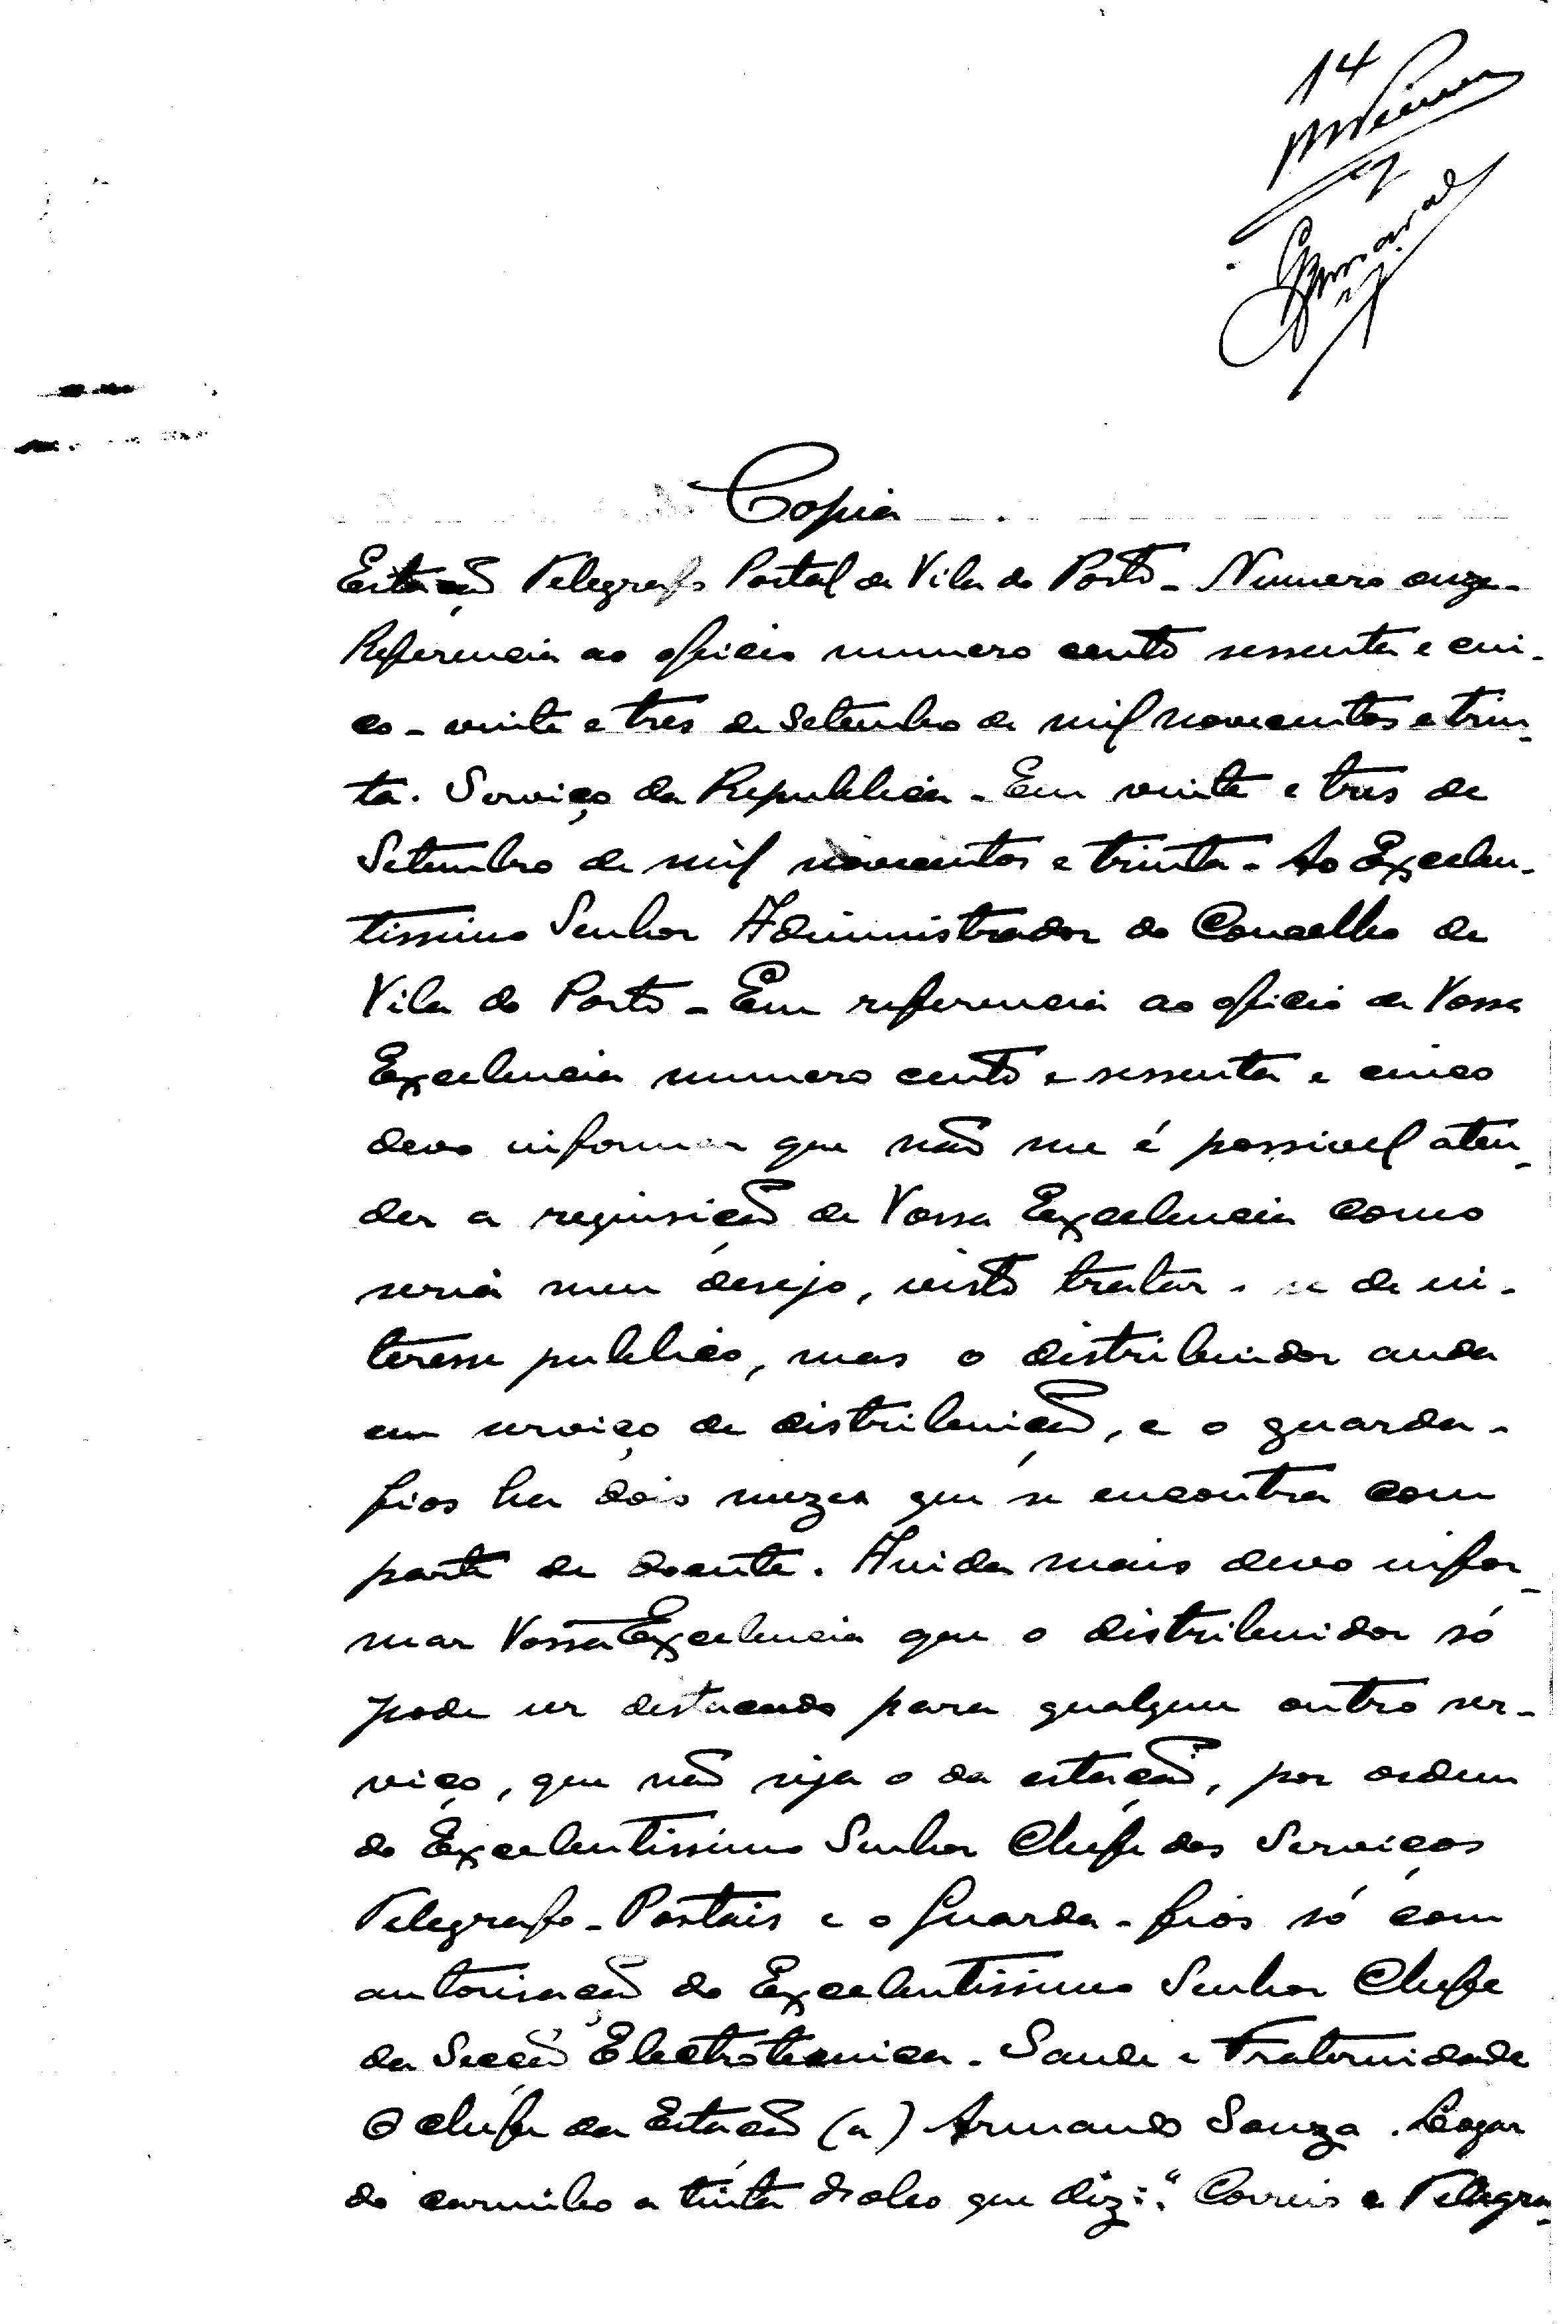 14
Copia
Estação Telegrafo Postal de Vila do Porto - Numero onze -
Referencia ao oficio numero cento sessenta e cin-
co - vinte e tres de Setembro de mil novecentos e trin-
ta. Serviço da Republica - Em vinte e tres de
Setembro de mil novecentos e trinta - Ao Excelen-
tissimo Senhor Administrador do Concelho de
Vila do Porto - Em referencia ao oficio de Vossa
Excelencia numero cento e sessenta e cinco
devo informar que não me é possivel aten-
der a requisição de Vossa Excelencia como
seria meu desejo, visto tratar-se de in-
teresse publico, mas o distribuidor anda
em serviço de distribuição, e o guarda-
fios ha dois mezes que se encontra com
parte de doente. Ainda mais devo infor-
mar Vossa Excelencia que o distribuidor só
pode ser destacado para qualquer outro ser-
viço, que não seja o da estação, por ordem
do Excelentissimo Senhor Chefe dos Serviços
Telegrafo-Postais e o Guarda-fios só com
autorisação do Excelentissimo Senhor Chefe
da Secção Electrotecnica - Saude e Fraternidade
O chefe da Estação (a) Armando Souza. Logar
do carimbo a tinta de oleo que diz: "Correio e Telegra-